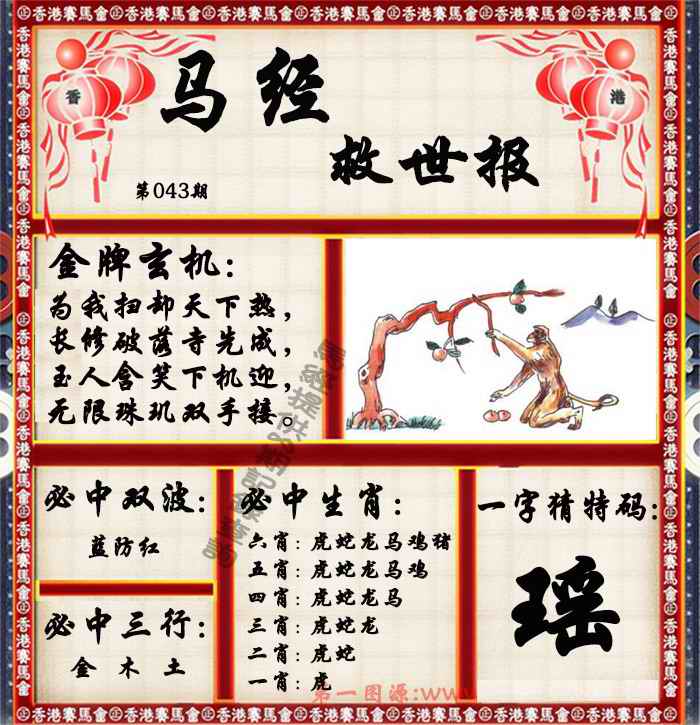 香港賽馬會
香
港
马经
救世报
第043期
金牌玄机：
为我扫却天下热，
长修破落寺先成，
玉人含笑下机迎，
无限珠玑双手接。
必中双波：
蓝防红
必中三行：
金 木 土
必中生肖：
六肖：虎蛇龙马鸡猪
五肖：虎蛇龙马鸡
四肖：虎蛇龙马
三肖：虎蛇龙
二肖：虎蛇
一肖：虎
一字猜特码：
瑶
第一图源:www